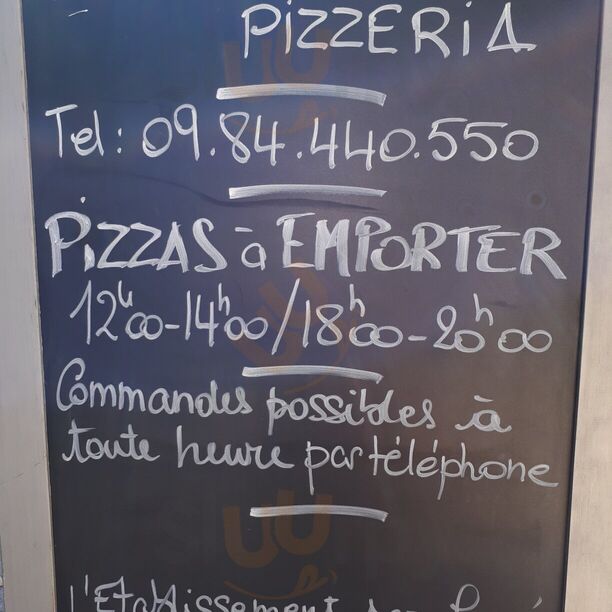 PIZZERIA
Tel : 09.84.440.550
PIZZAS à EMPORTER
12h00-14h00/18h00-20h00
Commandes possibles à
toute heure par téléphone
l'Etablissement